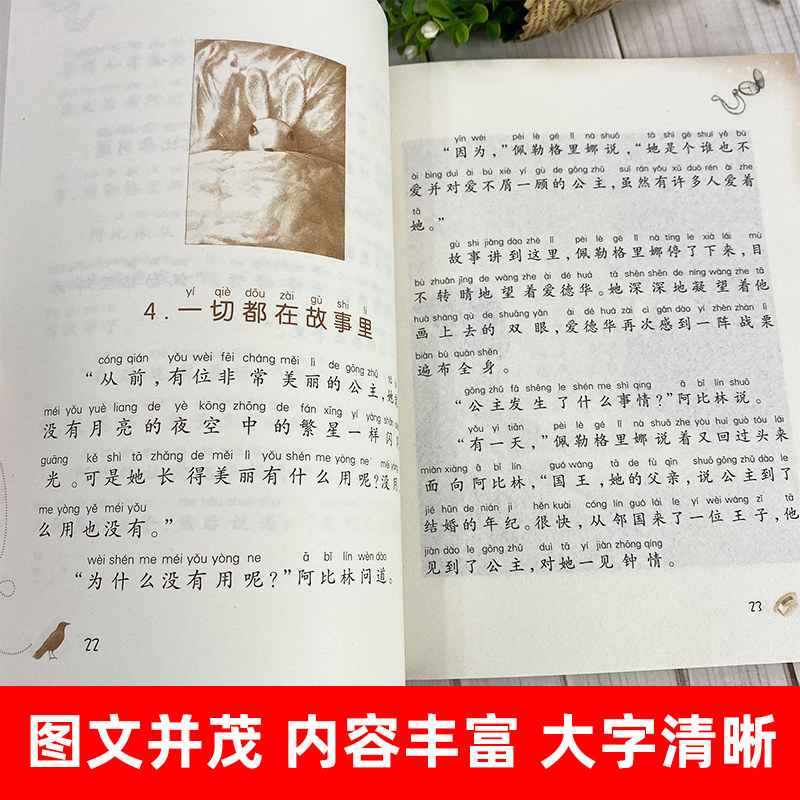 yí qiè dōu zài gù shi lǐ
4.一切都在故事里
cóng qián yǒu wèi fēi cháng měi lì de gōng zhǔ
“从前,有位非常美丽的公主,她
méi yǒu yuè liang de yè kōng zhōng de fán xīng yí yàng shǎn
没有月亮的夜空中的繁星一样闪
guāng kě shì tā zhǎng de měi lì yǒu shén me yòng ne méi
光。可是她长得美丽有什么用呢?没
me yòng yě méi yǒu
么用也没有。”
wèi shén me méi yǒu yòng ne ā bǐ lín wèn dào
“为什么没有用呢?”阿比林问道。
22
yīn wèi pèi lè gé lǐ nà shuō tā shì gè shuí yě bú
“因为,”佩勒格里娜说,“她是个谁也不
ài bìng duì ài bú xiè yí gù de gōng zhǔ suī rán yǒu xǔ duō rén ài zhe
爱并对爱不屑一顾的公主,虽然有许多人爱着
tā
她。”
gù shi jiǎng dào zhè lǐ pèi lè gé lǐ nà tíng le xià lái mù
故事讲到这里,佩勒格里娜停了下来,目
bù zhuǎn jīng de wàng zhe ài dé huá tā shēn shēn de níng wàng zhe tā
不转睛地望着爱德华。她深深地凝望着他
huà shàng qù de shuāng yǎn ài dé huá zài cì gǎn dào yí zhèn zhàn lì
画上去的双眼,爱德华再次感到一阵战栗
biàn bù quán shēn
遍布全身。
gōng zhǔ fā shēng le shén me shì qing ā bǐ lín shuō
“公主发生了什么事情?”阿比林说。
yǒu yì tiān pèi lè gé lǐ nà shuō zhe yòu huí guò tóu lái
“有一天,”佩勒格里娜说着又回过头来
miàn xiàng ā bǐ lín guó wáng tā de fù qīn shuō gōng zhǔ dào le
面向阿比林,“国王,她的父亲,说公主到了
jié hūn de nián jì hěn kuài cóng lín guó lái le yí wèi wáng zǐ tā
结婚的年纪。很快,从邻国来了一位王子,他
jiàn dào le gōng zhǔ duì tā yí jiàn zhōng qíng
见到了公主,对她一见钟情。
23
图文并茂 内容丰富 大字清晰